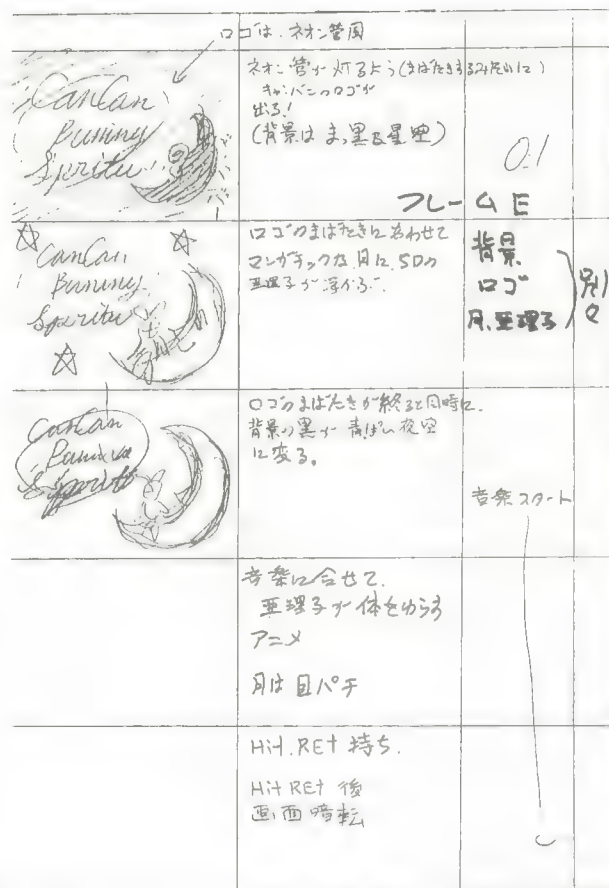 ロゴは、ネオン管風
CanCan
Bunny
Spritu
ネオン管が灯るよう(まばたきするみたいに)
キャンバニのロゴが
出る!
(背景はまっ黒な星空)
0.1
フレームE
CanCan
Bunny
Spritu
ロゴのまばたきに合わせて
マンガチックな月に、SDの
亜理子が浮かぶ。
背景
ロゴ
月、亜理子
別々
CanCan
ロゴのまばたきが終ると同時に、
背景の黒が青ぽい夜空
に変る。
音楽スタート
音楽に合せて、
亜理子が体をゆらす
アニメ
月は目パチ
Hit.REt 待ち.
Hit REt 後
画面暗転